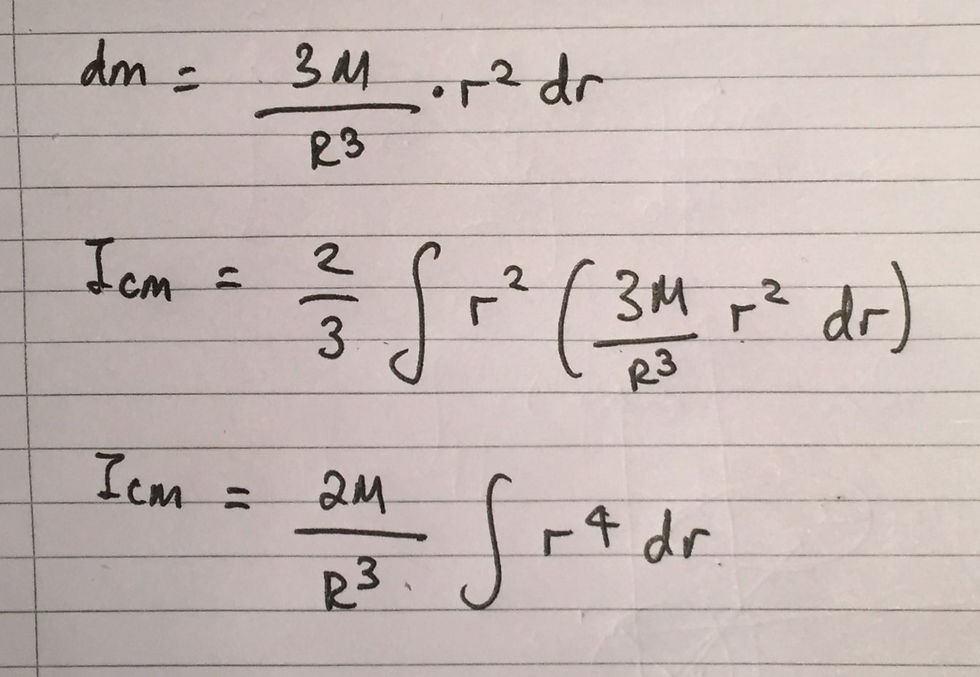 dm = 3M/R³ · r² dr
Icm = 2/3 ∫ r² (3M/R³ r² dr)
Icm = 2M/R³ ∫ r⁴ dr